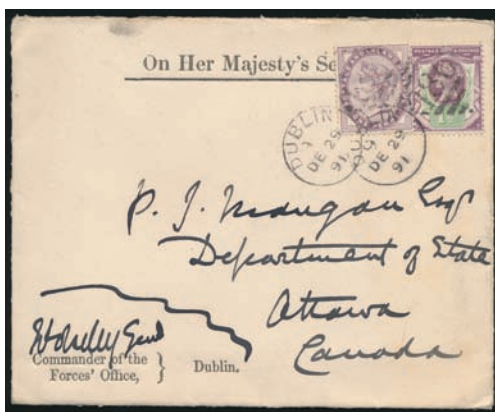 On Her Majesty's Se
DUBLIN
DE 29
91
DE 29
91
P. J. Mangan Esqr
Department of State
Ottawa
Canada
Wolseley Genl
Commander of the
Forces' Office, } Dublin.